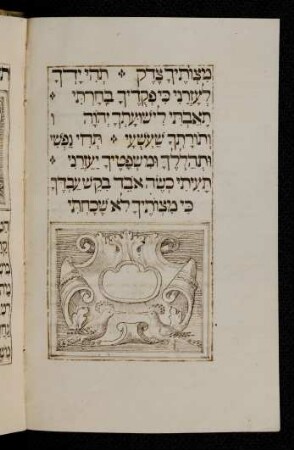 מִצְוֹתֶיךָ צֶּדֶק ❖ תְּהִי יָדְךָ
לְעָזְרֵנִי כִּי פִקּוּדֶיךָ בָחָרְתִּי ❖
תָּאַבְתִּי לִישׁוּעָתְךָ יְהוָה ו
וְתוֹרָתְךָ שַׁעֲשֻׁעָי ❖ תְּחִי נַפְשִׁי
וּתְהַלְלֶךָּ וּמִשְׁפָּטֶיךָ יַעְזְרֻנִי ❖
תָּעִיתִי כְּשֶׂה אֹבֵד בַּקֵּשׁ עַבְדֶּךָ
כִּי מִצְוֹתֶיךָ לֹא שָׁכָחְתִּי